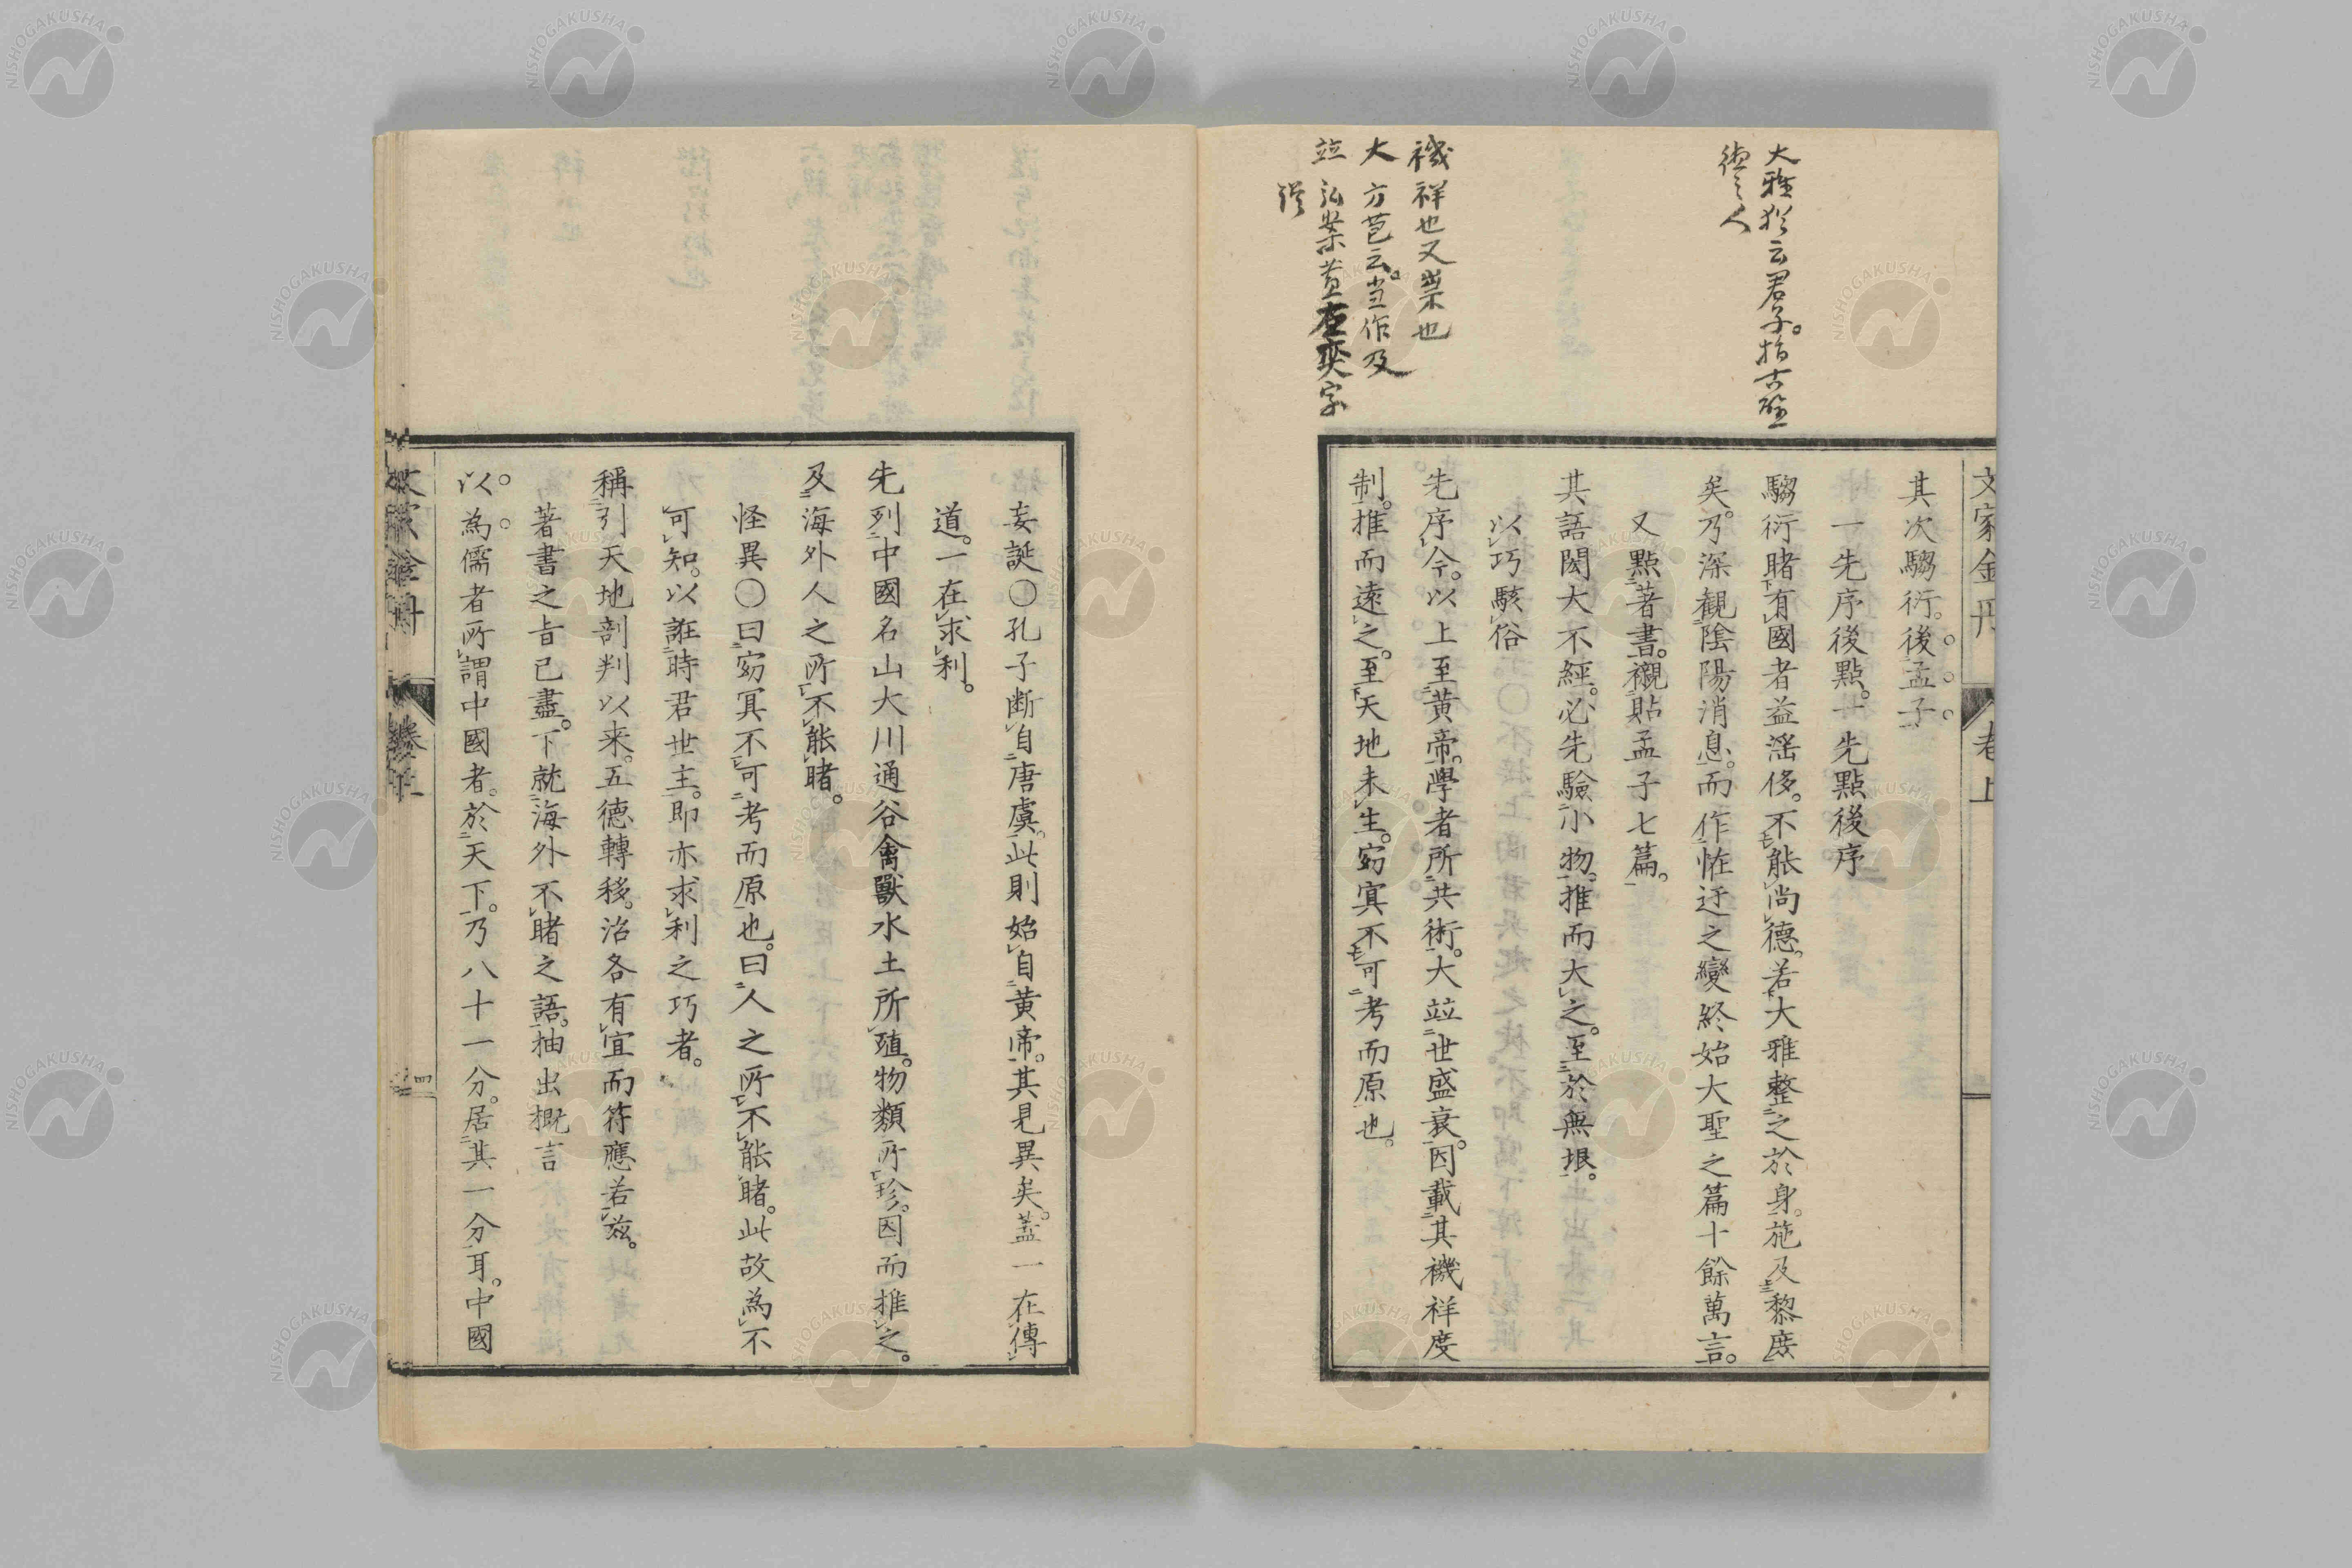 大雅猶云君子。指古聖
德之人
禨祥也又祟也
大方苞云。当作及
竝弘案黄
字
文家金丹 卷上
其次騶衍。後孟子。
一先序後點。一先點後序
騶衍睹有國者益滛侈。不能尚德。若大雅整之於身。施及黎庶
矣。乃深觀陰陽消息。而作怪迂之變終始大聖之篇十餘萬言。
又點著書。襯貼孟子七篇。
其語閎大不經。必先驗小物。推而大之。至於無垠。
以巧駭俗
先序今。以上至黄帝。學者所共術。大竝世盛衰。因載其禨祥度
制。推而遠之。至天地未生。窈冥不可考而原也。
妄誕〇孔子断自唐虞。此則始自黄帝。其見異矣。蓋一在傳
道。一在求利。
先列中國名山大川通谷禽獸水土所殖。物類所珍。因而推之。
及海外人之所不能睹。
怪異〇曰窈冥不可考而原也。曰人之所不能睹。此故為不
可知。以誑時君世主。即亦求利之巧者。
稱引天地剖判以来。五德轉移。治各有宜而符應若兹。
著書之旨已盡。下就海外不睹之語。抽出概言
以。為。儒者所謂中國者。於天下。乃八十一分。居其一分耳。中國
文家金丹 卷上 四